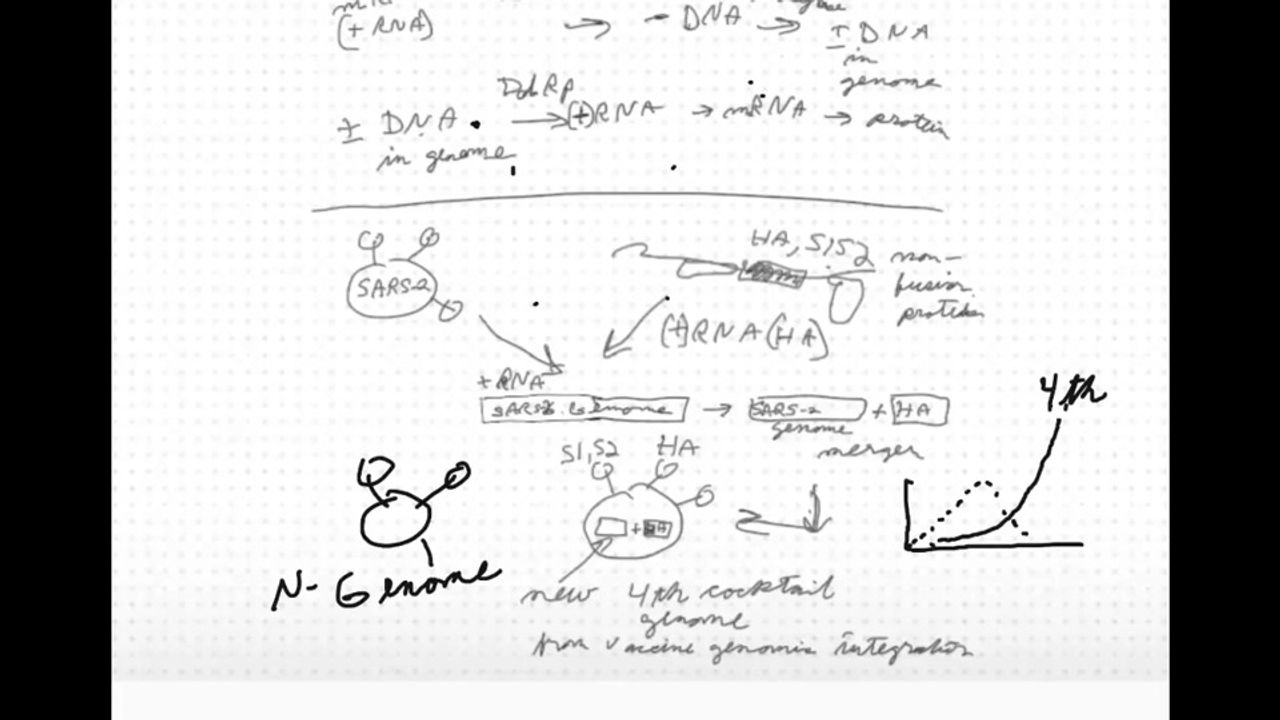 (+ RNA) → - DNA → ± DNA
in
genome
DdRp
± DNA → (+)RNA → mRNA → protein
in genome
HA, S1S2
non-
fusion
protein
SARS-2
(+)RNA (HA)
4th
+ RNA
genome → SARS-2 + HA
genome
merger
S1, S2 HA
+ HA
N- Genome
new 4th cocktail
genome
from vaccine genomic integration